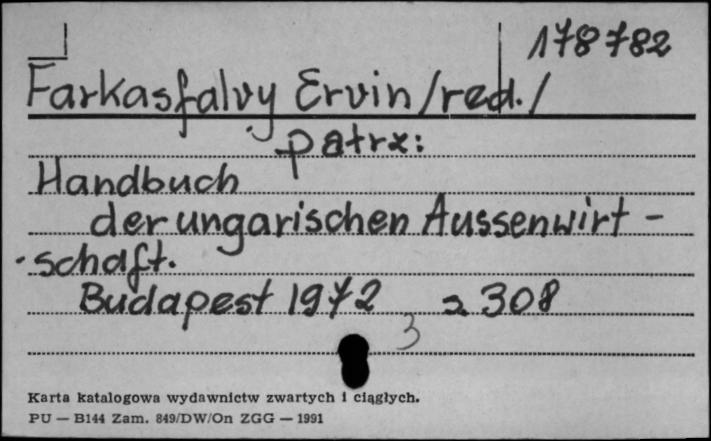 178782
Farkasfalvy Ervin /red./
patrz:
Handbuch
der ungarischen Aussenwirt-
schaft.
Budapest 1972 s. 308
3
Karta katalogowa wydawnictw zwartych i ciągłych.
PU — B144 Zam. 849/DW/On ZGG — 1991